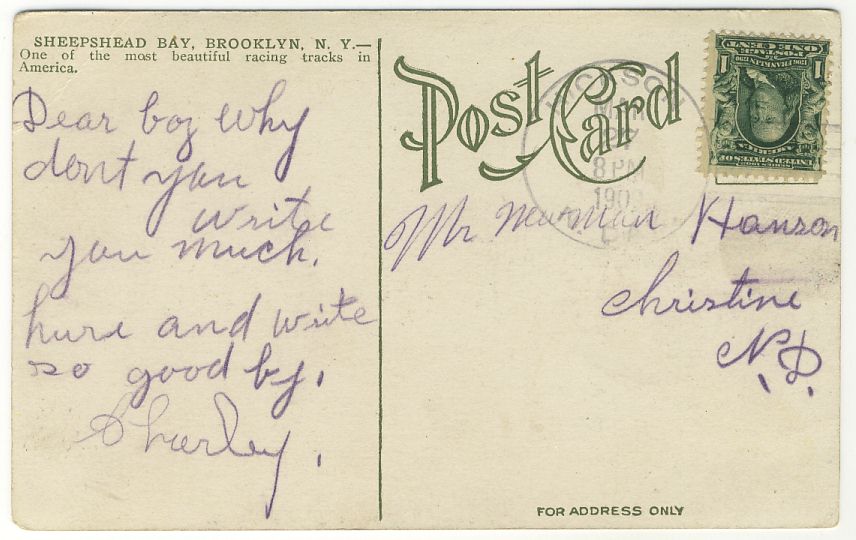 SHEEPSHEAD BAY, BROOKLYN, N. Y.—
One of the most beautiful racing tracks in
America.
Dear boy why
dont you
write
you much.
hure and write
so good by.
Charley.
POST CARD
MAR
27
8 PM
190
Mr Newman Hanson
Christine
N.D.
FOR ADDRESS ONLY
POSTAGE
ONE CENT
1 1
FRANKLIN
AMERICA
UNITED STATES OF